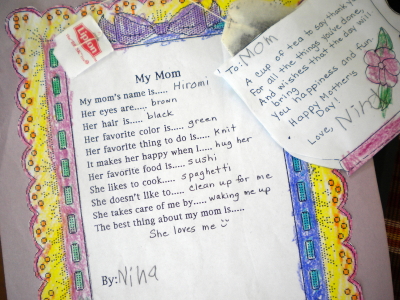 Lipton
My Mom
My mom's name is..... Hiromi
Her eyes are..... brown
Her hair is..... black
Her favorite color is..... green
Her favorite thing to do is..... Knit
It makes her happy when I..... hug her
Her favorite food is..... sushi
She likes to cook..... spaghetti
She doesn't like to..... clean up for me
She takes care of me by..... waking me up
The best thing about my mom is.....
She loves me
By: Nina
To: Mom
A cup of tea to say thank
For all the things you've done,
And wishes that the day will
bring
You happiness and fun.
Happy Mother's
Day!
Love, Nina